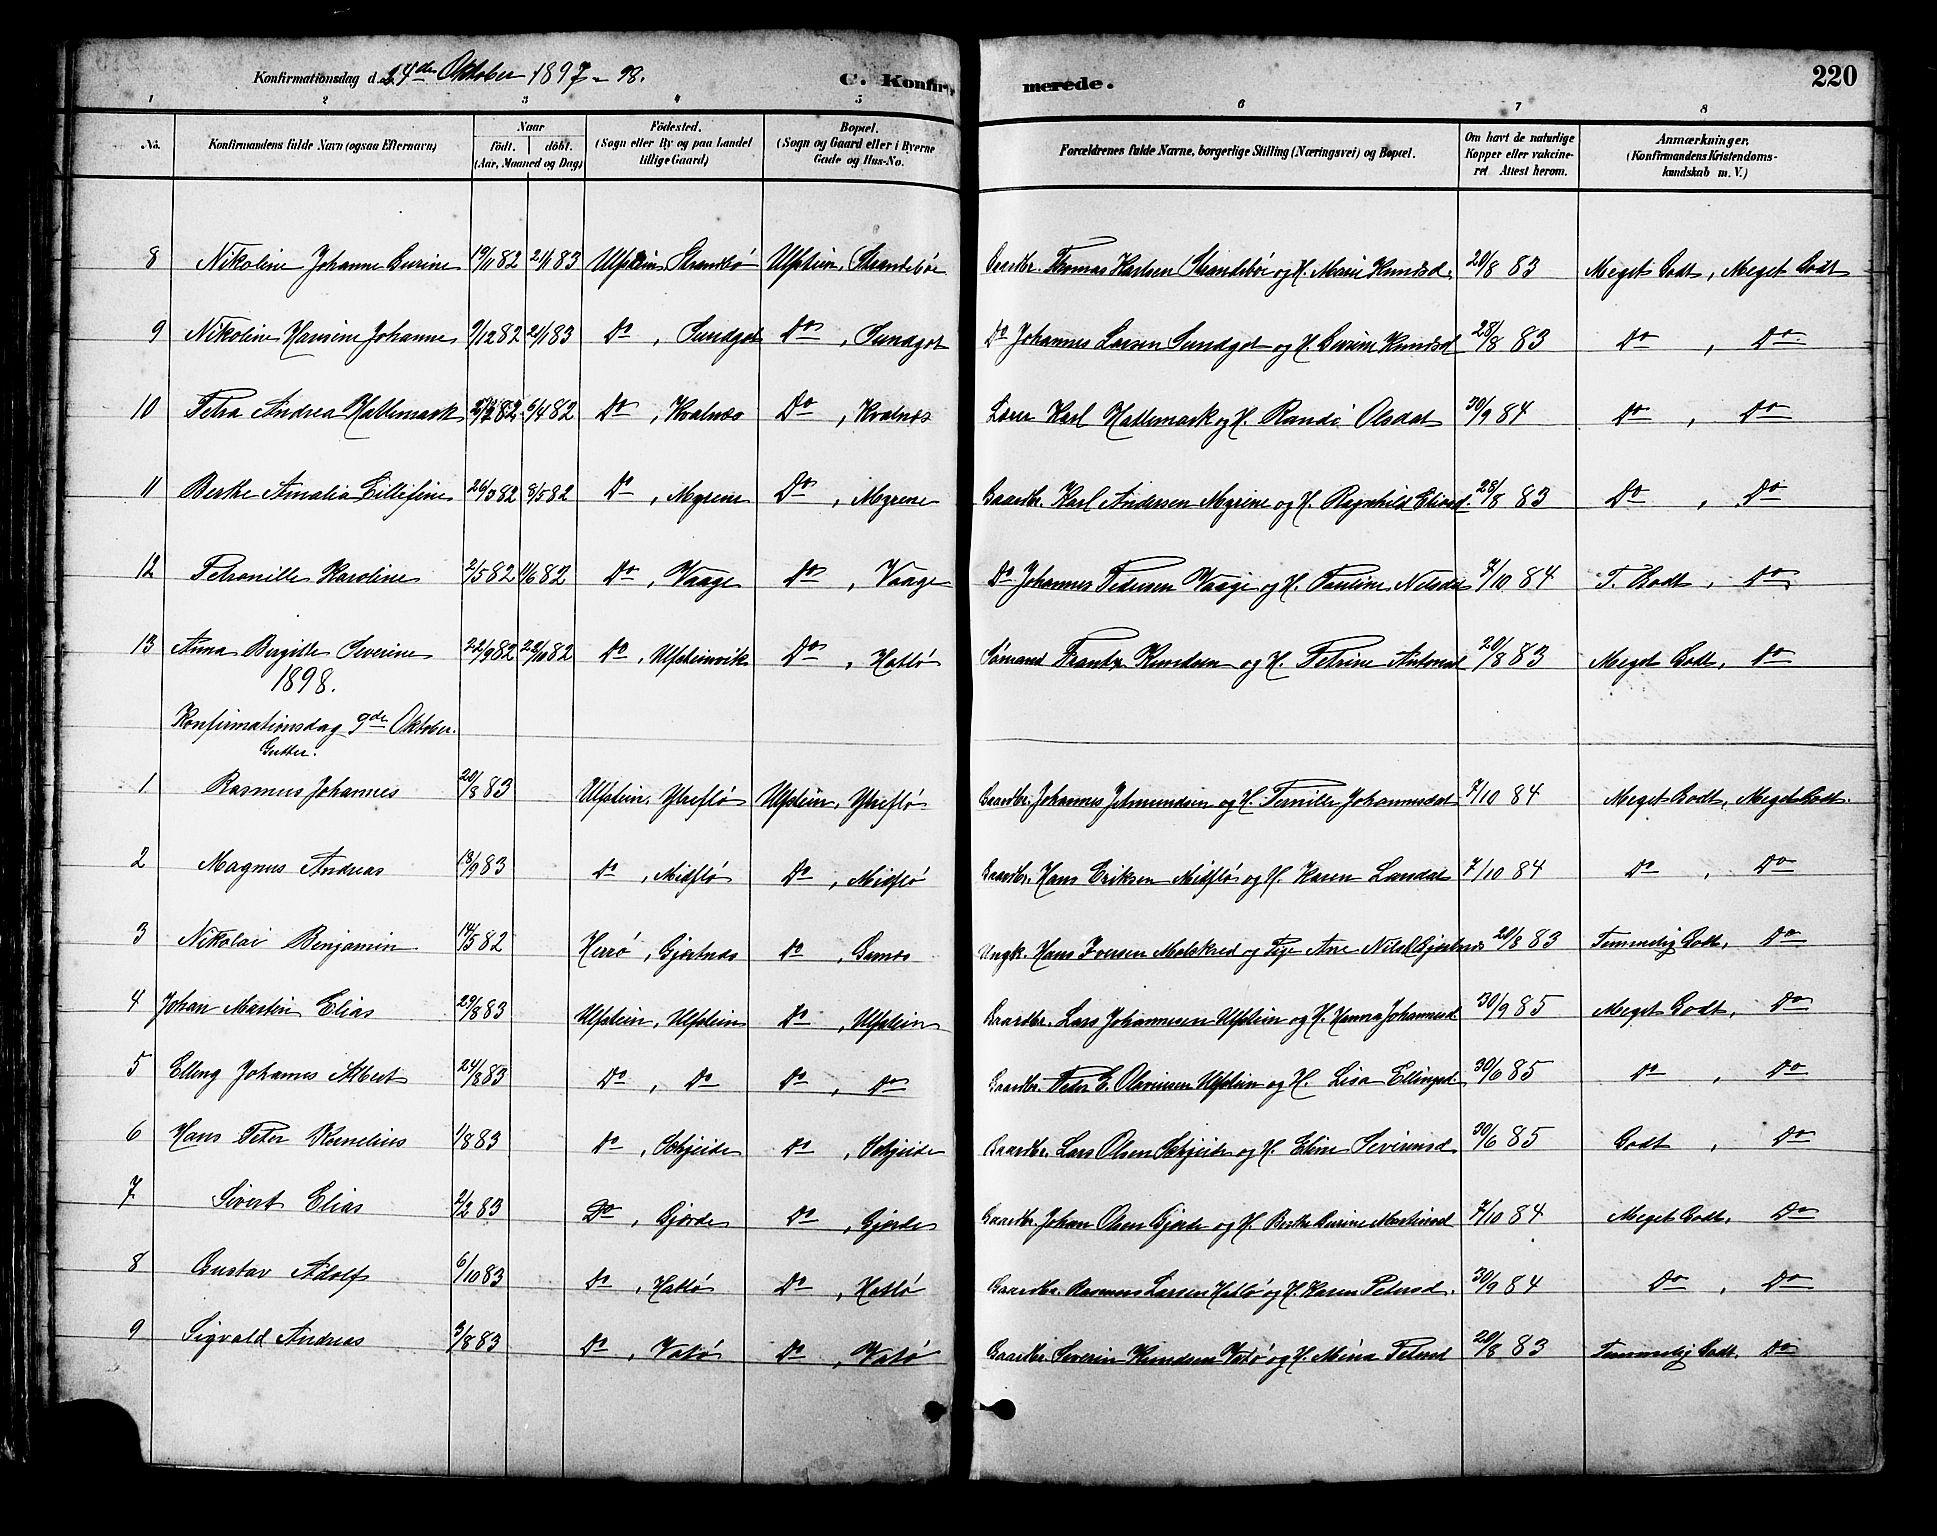 Konfirmationsdag d. 24de Oktober 1897 - 98. C. Konfirmerede. 220
1 2 3 4 5 6 7 8
No. Konfirmandens fulde Navn (ogsaa Efternavn) Naar født. døbt. (Aar, Maaned og Dag) Fødested. (Sogn eller By og paa Landet tillige Gaard) Bopæl. (Sogn og Gaard eller i Byerne Gade og Hus-No. Forældrenes fulde Navne, borgerlige Stilling (Næringsvei) og Bopæl. Om havt de naturlige Kopper eller vakcineret Attest herom. Anmærkninger. (Konfirmandens Kristendomskundskab m. V.)
8 Nikoline Johanne 19/11 82 2/1 83 Ulfstein, Strandebø Ulfstein, Strandebø Gaardbr. Thomas Karlsen Strandebø og H. Marie Knudsd. 20/8 83 Meget Godt, Meget Godt
9 Nikoline Hansine Johanne 9/12 82 21/1 83 Do, Sundgot Do, Sundgot Do Johannes Larsen Sundgot og H. Knudsd 28/8 83 Do, Do
10 Petra Andrea Hatlemark 9/4 82 Do, Kvalnes Do, Kvalnes Lærer Karl Hatlemark og H. Randi Olsdat 30/9 84 Do, Do
11 Berthe Amalia 26/3 82 8/5 82 Do, Myrene Do, Myrene Gaardbr. Karl Andersen Myrene og H. Ragnhild 28/8 83 Do, Do
12 Petronille Karoline 2/5 82 11/6 82 Do, Vaage Do, Vaage Do Johannes Pedersen Vaage og H. Pauline Nilsdat 7/10 84 T. Godt, Do
13 Anna Birgitte Severine 22/9 82 22/10 82 Do, Ulfsteinvik Do, Hatlø Sømand Frantz Knudsen og H. Petrine Antonsd 20/8 83 Meget Godt, Do
1898.
Konfirmationsdag 9de Oktober.
Gutter.
1 Rasmus Johannes 20/8 83 Ulfstein, Ytreflø Ulfstein, Ytreflø Gaardbr. Johannes Jetmundsen og H. Pernille Johannesdat 7/10 84 Meget Godt, Meget Godt.
2 Magnus Andreas 18/9 83 Do, Midflø Do, Midflø Gaardbr. Hans Eriksen Midflø og H. Karen Larsdat 7/10 84 Do, Do
3 Nikolai Benjamin 14/5 82 Herrø, Gjertnes Do, Garnes Ungk. Hans Iversen Molskred og Pige Ane Nilsd Gjertnes 20/8 83 Temmelig Godt, Do
4 Johan Martin Elias 29/8 83 Ulfstein, Ulfstein Do, Ulfstein Gaardbr. Lars Johannesen Ulfstein og H. Hanna Johannesd 30/9 85 Meget Godt, Do
5 Elling Johannes Albert 24/8 83 Do, Do Do, Do Gaardbr. Peter E. Ulfstein og H. Lisa Ellingsd. 30/6 85 Do, Do
6 Hans Peter Kornelius 1/8 83 Do, Schjeide Do, Schjeide Gaardbr. Lars Olsen Schjeide og H. Eline Severinsd 30/6 85 Godt, Do
7 Sivert Elias 2/2 83 Do, Gjerde Do, Gjerde Gaardbr. Johan Olsen Gjerde og H. Berthe Martinsd 7/10 84 Meget Godt, Do
8 Gustav Adolf 6/10 83 Do, Hatlø Do, Hatlø Gaardbr. Rasmus Larsen Hatlø og H. Karen Petersd. 30/9 84 Do, Do
9 Sigvald Andreas 3/8 83 Do, Vatø Do, Vatø Gaardbr. Severin Knudsen Vatø og H. Mina Petersd 20/8 83 Temmelig Godt, Do